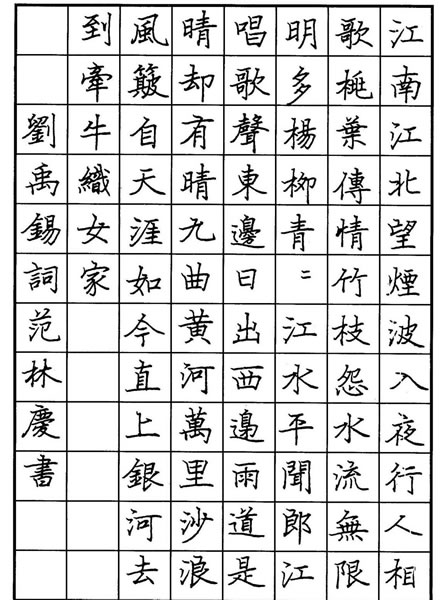 江南江北望煙波入夜行人相
歌桃葉傳情竹枝怨水流無限
明多楊柳青〻江水平聞郎江
唱歌聲東邊日出西邊雨道是
晴却有晴九曲黄河萬里沙浪
風簸自天涯如今直上銀河去
到牽牛織女家
劉禹錫詞范林慶書